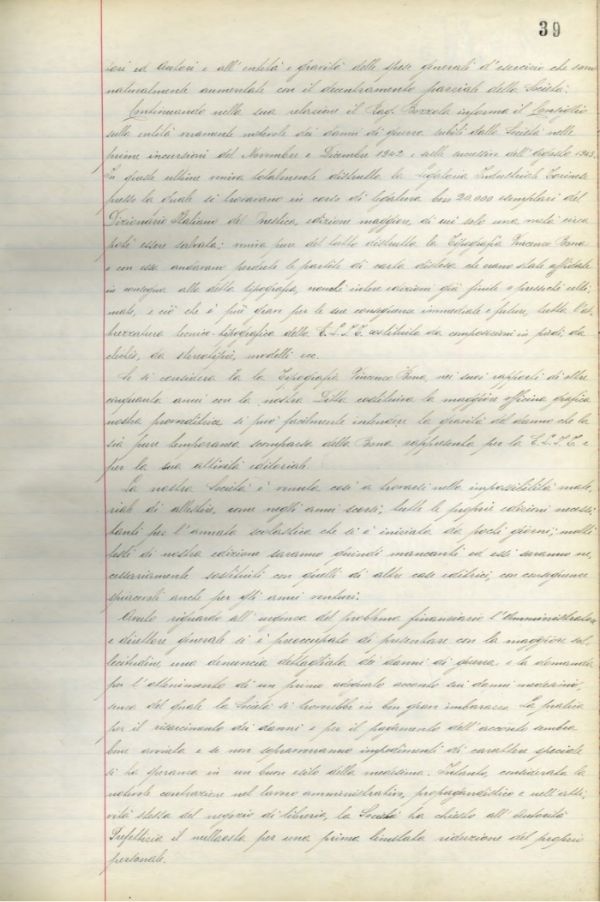 39
tori ed Autori e all'entità e gravità delle spese generali d'esercizio che sono
naturalmente aumentate con il decentramento parziale della Società.
Continuando nella sua relazione il Rag. Bozzola informa il Consiglio
sulla entità veramente notevole dei danni di guerra subiti dalla Società nelle
prime incursioni del Novembre e Dicembre 1942 e nelle successive dell'agosto 1943.
In queste ultime veniva totalmente distrutta la Legatoria Industriale Torinese
presso la quale si trovavano in corso di legatura ben 20.000 esemplari del
Dizionario Italiano del Mestica, edizione maggiore, di cui solo una metà circa
potè essere salvata; veniva pure del tutto distrutta la Tipografia Vincenzo Bona
e con essa andavano perdute le partite di carta distesa che erano state affidate
in consegna alla detta tipografia, nonchè intere edizioni già finite e pressochè ulti,
mate, e ciò che è più grave per le sue conseguenze immediate e future, tutta l'at,
trezzatura tecnico-tipografica della S.E.I. costituita da composizioni in piedi, da
clichés, da stereotipie, modelli ecc.
Se si considera che la Tipografia Vincenzo Bona, nei suoi rapporti di oltre
cinquanta anni con la nostra Ditta costituiva la maggiore officina grafica
nostra fornitrice si può facilmente intendere la gravità del danno che la
sia pure temporanea scomparsa della Bona rappresenta per la e
per la sua attività editoriale.
La nostra Società è venuta così a trovarsi nella impossibilità mate,
riale di allestire, come negli anni scorsi, tutte le proprie edizioni neces,
tanti per l'annata scolastica che si è iniziata da pochi giorni; molti
testi di nostra edizione saranno quindi mancanti ed essi saranno ne,
cessariamente sostituiti con quelli di altre case editrici, con conseguenze
spiacenti anche per gli anni venturi.
Avuto riguardo all'urgenza del problema finanziario l'Amministratore
e direttore generale si è preoccupato di presentare con la maggiore sol,
lecitudine, una denuncia dettagliata dei danni di guerra e la domanda
per l'ottenimento di un primo adeguato acconto sui danni medesimi,
senza del quale la Società si troverebbe in ben grave imbarazzo. La pratica
per il risarcimento dei danni e per il pagamento dell'acconto sembra
bene avviata e se non sopravverranno impedimenti di carattere speciale
si ha speranza in un buon esito della medesima. Intanto, considerata la
notevole contrazione nel lavoro amministrativo, propagandistico e nell'atti,
vità stessa del negozio di libreria, la Società ha chiesto all'Autorità
Prefettizia il nullaosta per una prima limitata riduzione del proprio
personale.